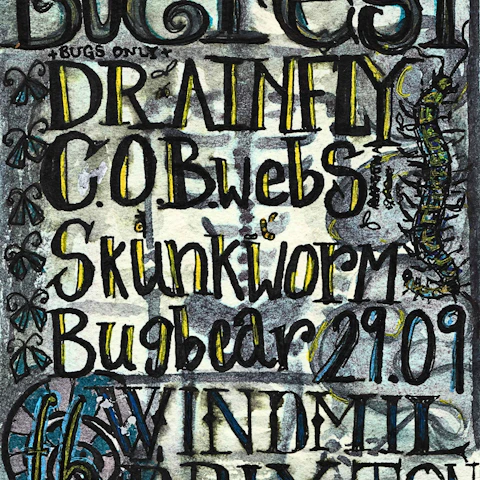 BUGFEST
+BUGS ONLY+
DRAINFLY
C.O.B.webS
SkunkworM
Bugbear 29.09
£6 WINDMIL
BRIXTON